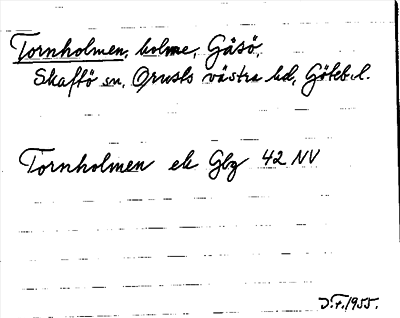 Tornholmen, holme, Gåsö,
Skaftö sn, Orusts västra hd, Göteb. l.
Tornholmen ek Gbg 42 NV
D.F. 1955.